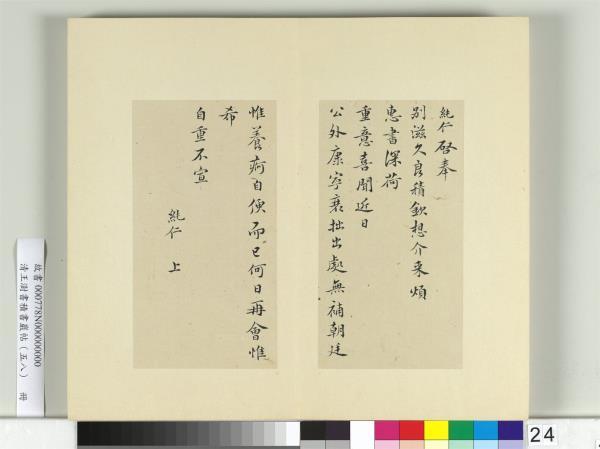 純仁啓奉
別滋久良積欽想介来煩
惠書深荷
重意喜聞近日
公外康寧衰拙出處無補朝廷
惟養痾自便而已何日再會惟
希
自重不宣
純仁 上
故書 000778N00000000
清王澍書積書巖帖(五八) 冊
24